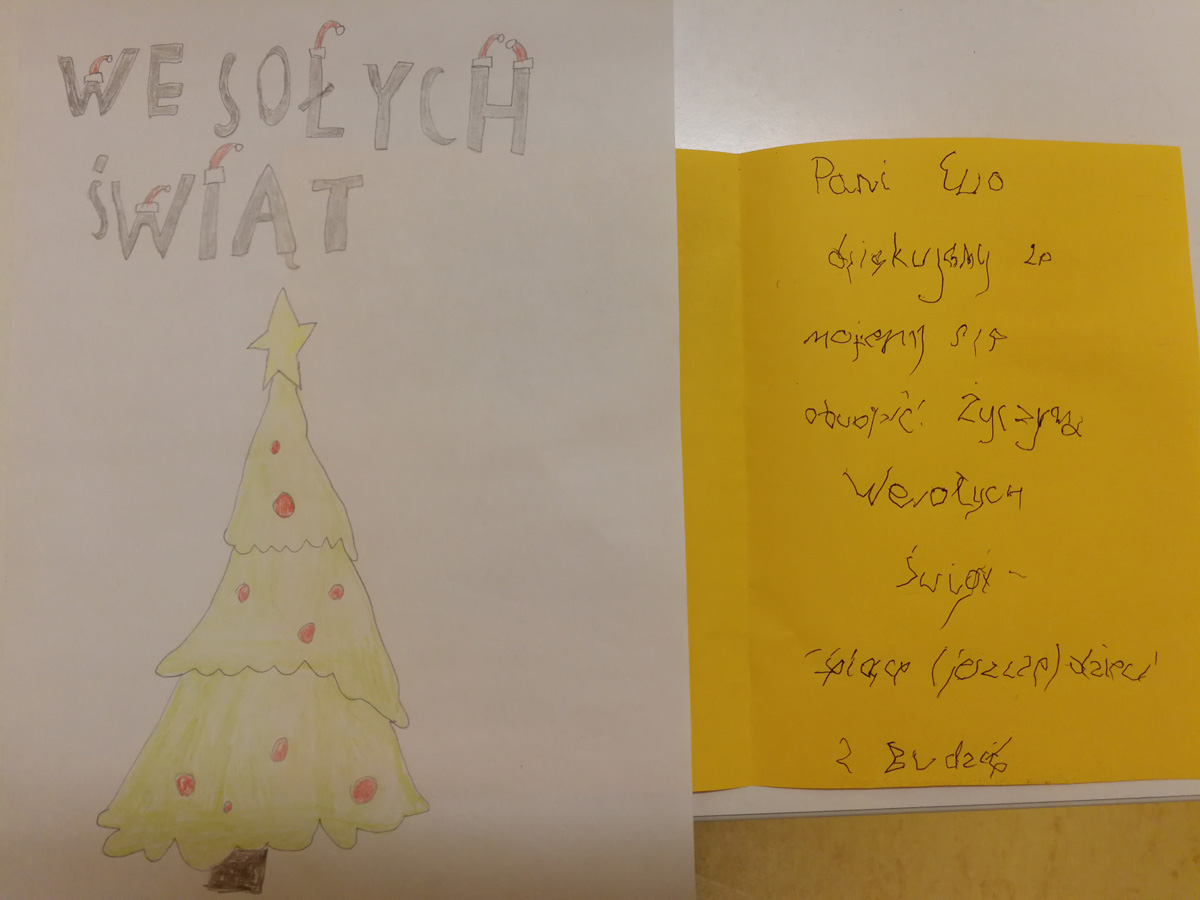 WESOŁYCH
ŚWIĄT
Pani Ewo
dziękujemy za
możemy się
obudzić! Życzymy
Wesołych
Świąt ~
-śpiące (jeszcze) dzieci
z Budzik